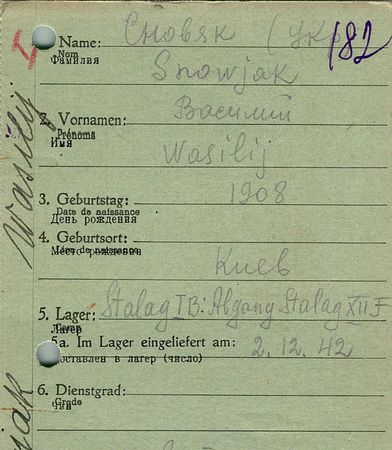 Name: Сновяк (Укр) 182
Nom
Фамилия
Snowjak
2. Vornamen: Василий
Prénoms
Имя
Wasilij
3. Geburtstag: 1908
Date de naissance
День рождения
4. Geburtsort:
Lieu de naissance
Место рождения
Киев
5. Lager: Stalag IB: Abgang Stalag XII F
Camp
Лагерь
5a. Im Lager eingeliefert am: 2.12.42
Доставлен в лагерь (число)
6. Dienstgrad:
Grade
Чин
Wasilij
jak